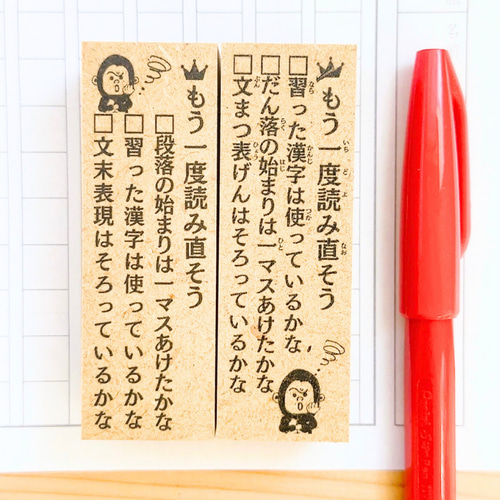 もう一度読み直そう
□習った漢字は使っているかな
□だん落の始まりは一マスあけたかな
□文まつ表げんはそろっているかな
もう一度読み直そう
□段落の始まりは一マスあけたかな
□習った漢字は使っているかな
□文末表現はそろっているかな